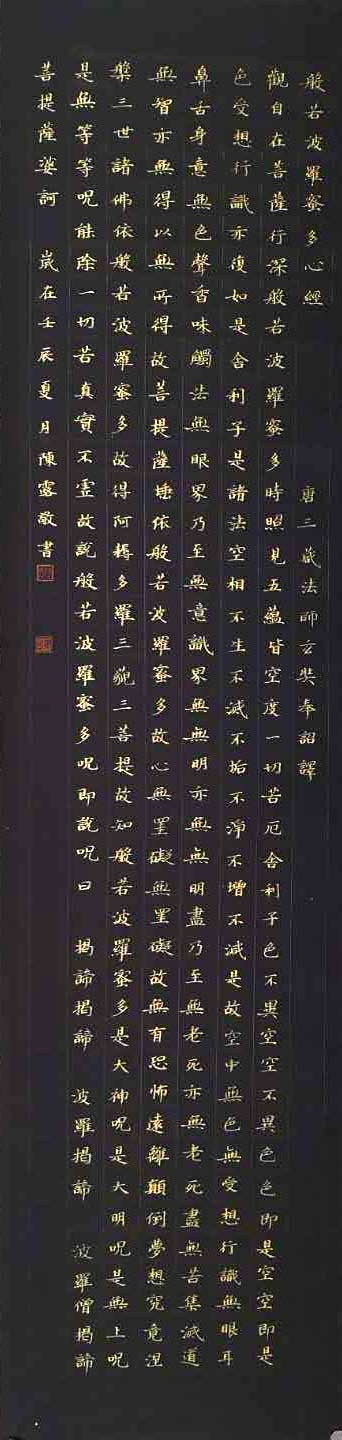 般若波羅蜜多心經 唐三藏法師玄奘奉詔譯
觀自在菩薩行深般若波羅蜜多時照見五蘊皆空度一切苦厄舍利子色不異空空不異色色即是空空即是
色受想行識亦復如是舍利子是諸法空相不生不滅不垢不淨不增不減是故空中無色無受想行識無眼耳
鼻舌身意無色聲香味觸法無眼界乃至無意識界無無明亦無無明盡乃至無老死亦無老死盡無苦集滅道
無智亦無得以無所得故菩提薩埵依般若波羅蜜多故心無罣礙無罣礙故無有恐怖遠離顛倒夢想究竟涅
槃三世諸佛依般若波羅蜜多故得阿耨多羅三藐三菩提故知般若波羅蜜多是大神呪是大明呪是無上呪
是無等等呪能除一切苦真實不虛故說般若波羅蜜多呪即說呪曰 揭諦揭諦 波羅揭諦 波羅僧揭諦
菩提薩婆訶 歲在壬辰夏月陳露敬書